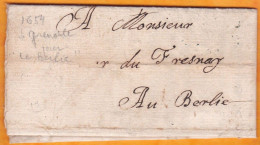 1659
grenoble
pour
"la Berlie"
A Monsieur
r du Fresnay
Au Berlie